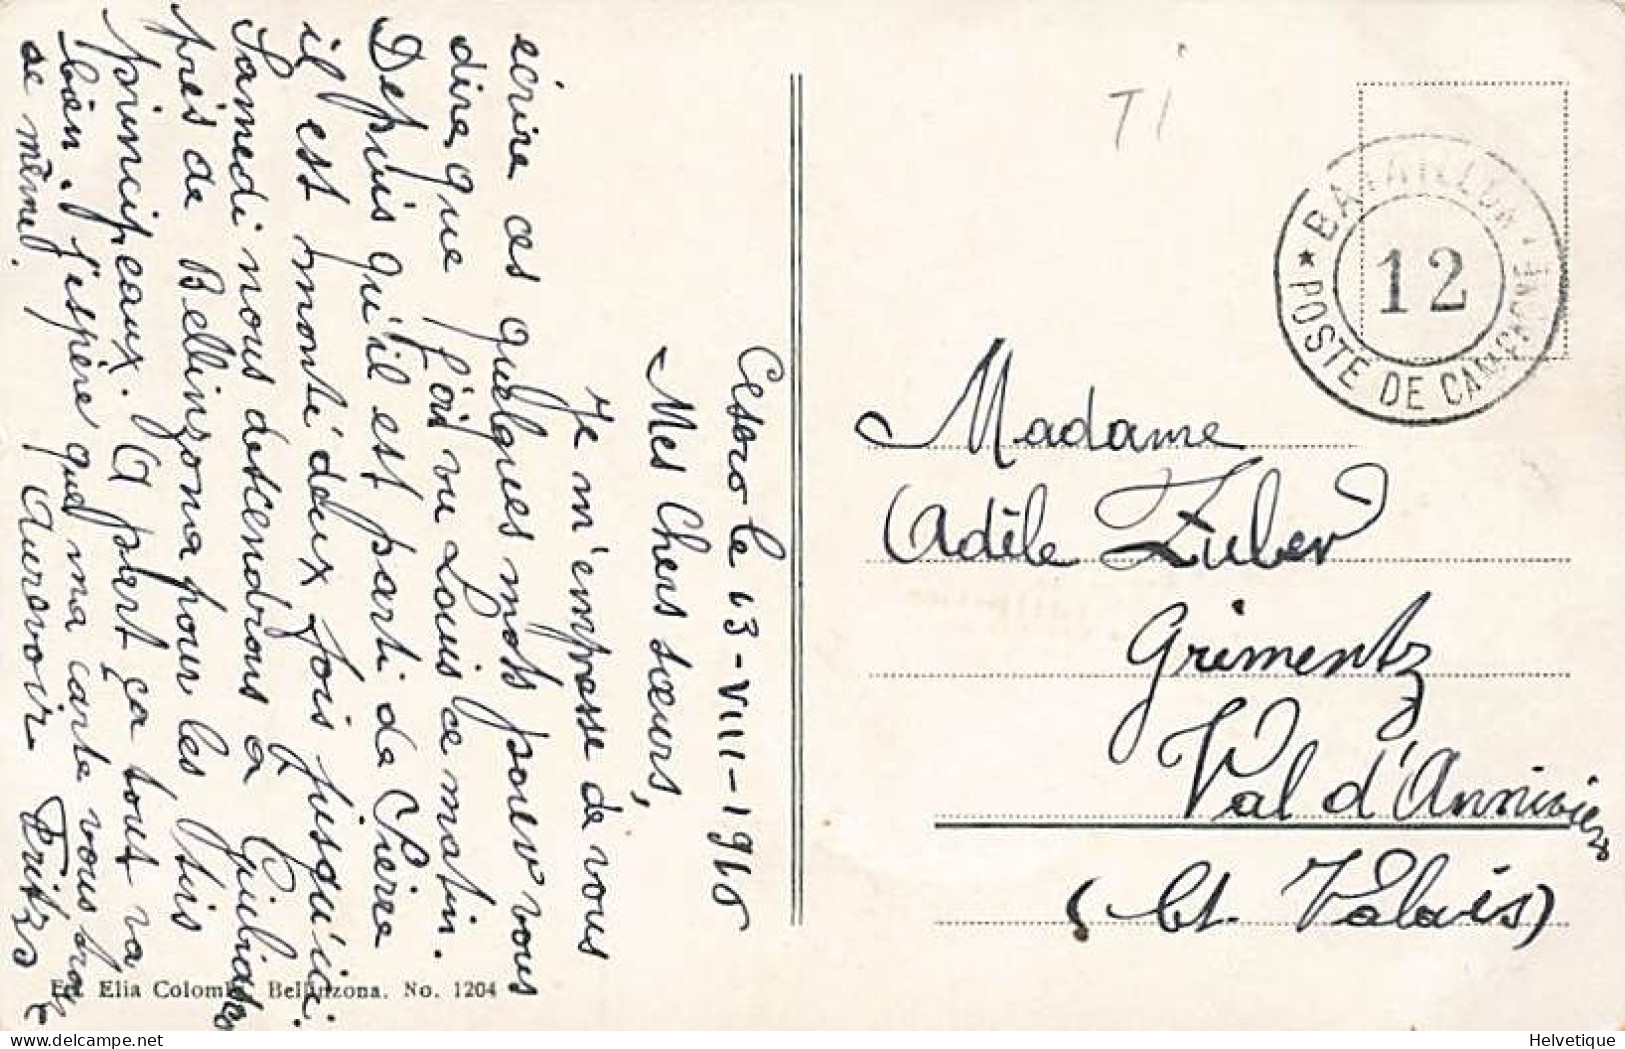 le 13-VIII-1915
Mes Chers sœurs,
Je m'empresse de vous
écrire ces quelques mots pour vous
dire que j'ai vu Louis ce matin.
Depuis qu'il est parti de Sierre
il est monté deux fois jusqu'ici.
Samedi nous descendrons a
près de Bellinzona pour les tirs
principeaux. A part ça tout va
bien. J'espère que ma carte vous
de même. Aurevoir Fritz
TI
BATAILLON
12
* POSTE DE CAMPAGNE
Madame
Adèle Zuber
Grimentz
Val d'Anniviers
(Ct. Valais)
Ed. Elia Colombi, Bellinzona. No. 1204
delcampe.net
Helvetique